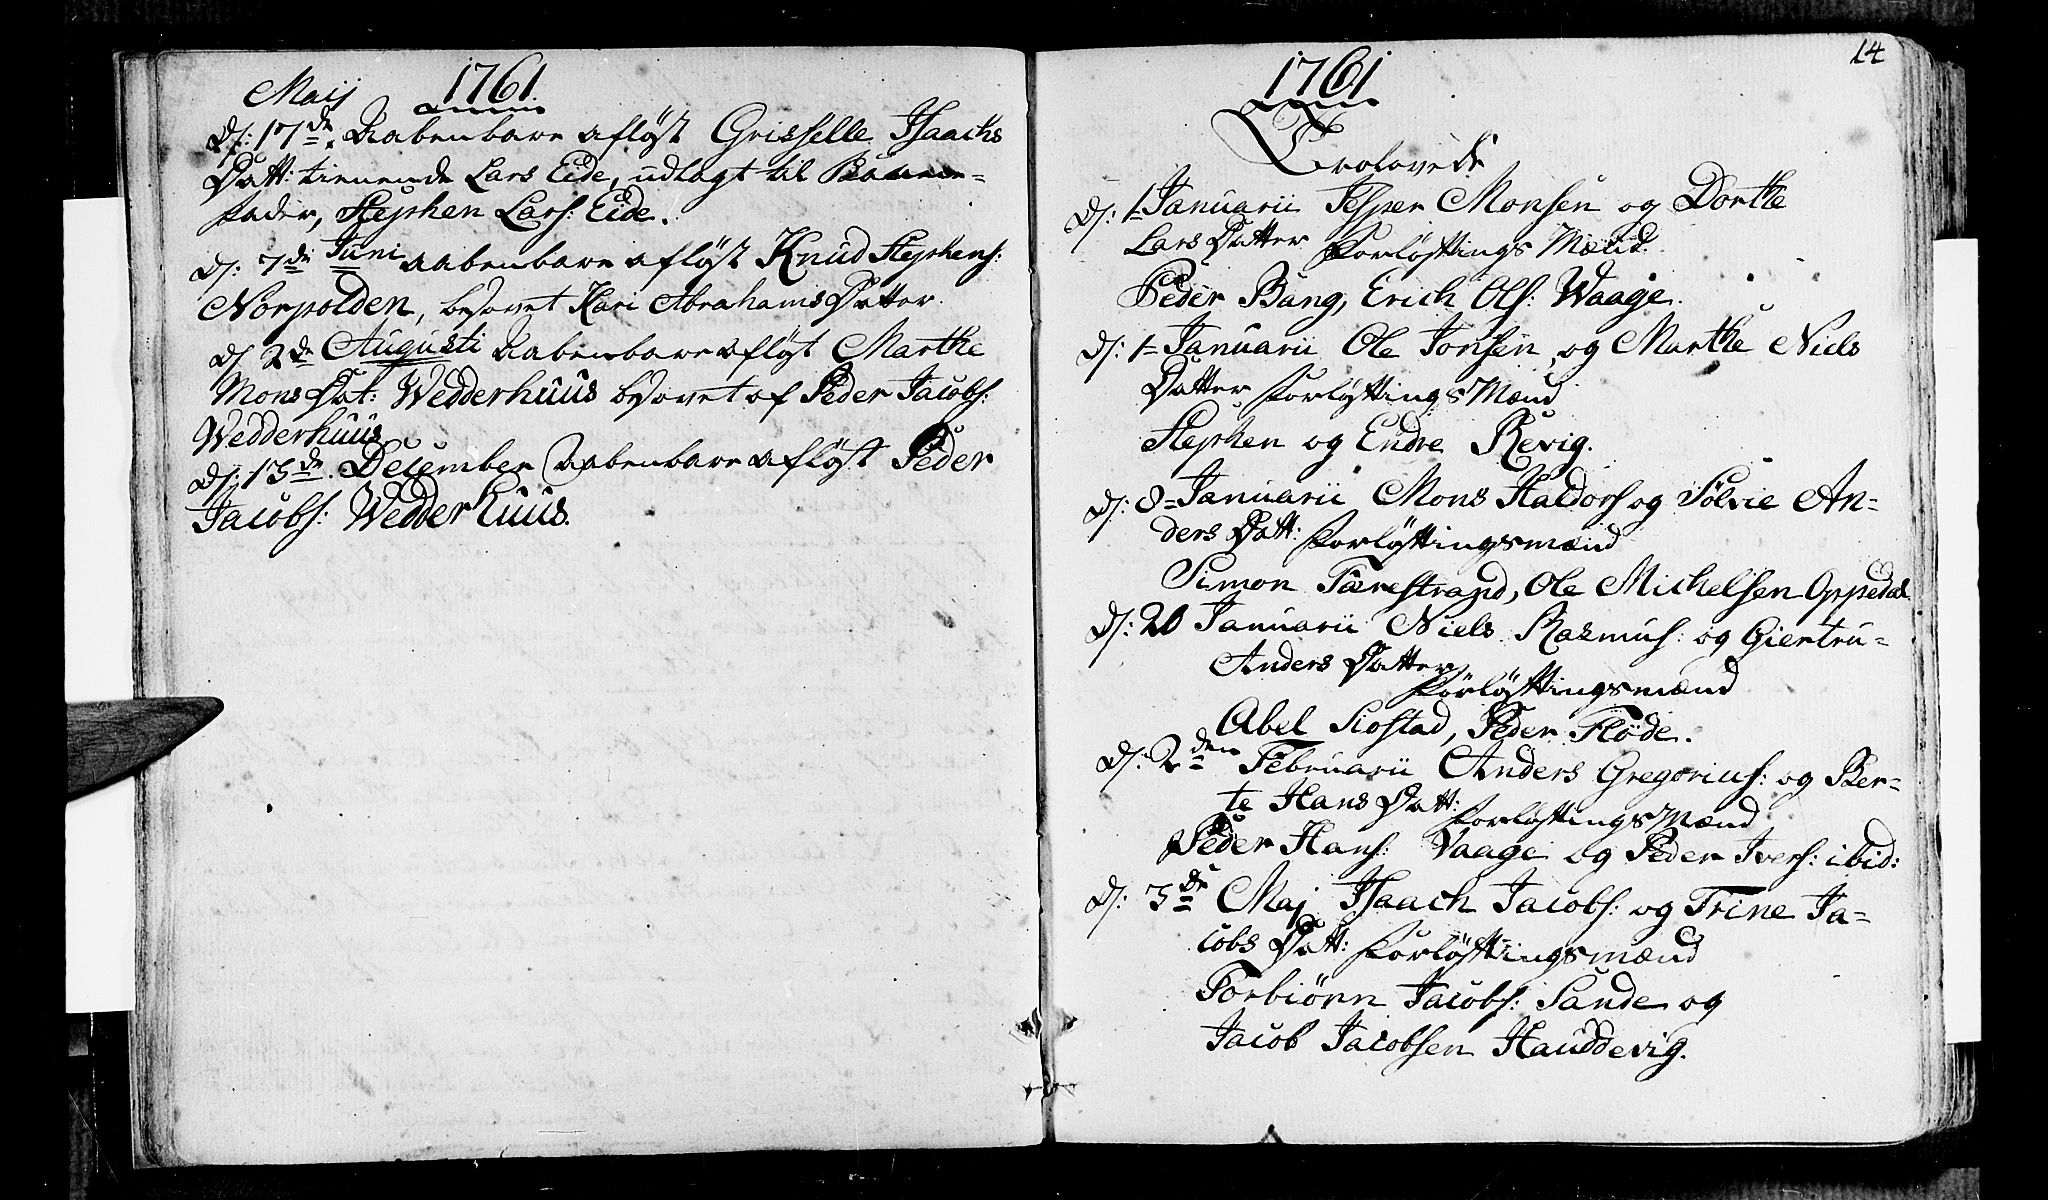 Maij 1761
D: 17de Aabenbare afløst Grisselle Isaachs
Datt: tienende Lars Eide, udlagt til Barne-
fader, Stephen Lars: Eide.
D: 7de Juni aabenbare afløst Knud Stephens:
Norpolden, besovet Kari Abrahams Datter.
D: 2de Augusti Aabenbare afløst Marthe
Mons Dat: Wedderhuus besovet af Peder Jacobs:
Wedderhuus
D: 13de December Aabenbare afløst Peder
Jacobs: Wedderhuus.
14
1761
Trolovede
D: 1= Januarii Jesper Monsen og Dorthe
Lars Datter Forløftings Mænd
Peder Bang, Erich Ols: Waage.
D: 1= Januarii Ole Jonsen og Marthe Niels
Datter Forløftings Mænd
Stephen og Endre Revig.
D: 8= Januarii Mons Haldors og Sølvie An-
ders Datt: Forløftingsmænd
Simon Tærestrand, Ole Michelsen Oppedal
D: 20 Januarii Niels Rasmus: og Giertru-
Anders Datter Forløftingsmænd
Abel Siostad, Peder Fløde.
D: 2den Februarii Anders Gregorius: og Ber-
te Hans Datt: Forløftings Mænd
Peder Hans: Vaage og Peder Ivers: ibid:
D: 3de Maj Isaach Jacobs: og Trine Ja-
cobs Datt: Forløftingsmænd
Torbiörn Jacobs: Sande og
Jacob Jacobsen Hauddevig.